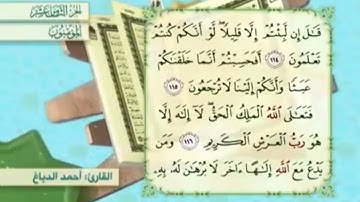 الجزء الثامن عشر
المؤمنون
قَـٰلَ إِن لَّبِثْتُمْ إِلَّا قَلِيلًا ۖ لَّوْ أَنَّكُمْ كُنتُمْ
تَعْلَمُونَ ١١٤ أَفَحَسِبْتُمْ أَنَّمَا خَلَقْنَـٰكُمْ
عَبَثًا وَأَنَّكُمْ إِلَيْنَا لَا تُرْجَعُونَ ١١٥
فَتَعَـٰلَى اللَّهُ الْمَلِكُ الْحَقُّ ۖ لَآ إِلَـٰهَ إِلَّا
هُوَ رَبُّ الْعَرْشِ الْكَرِيمِ ١١٦ وَمَن
يَدْعُ مَعَ اللَّهِ إِلَـٰهًا ءَاخَرَ لَا بُرْهَـٰنَ لَهُۥ بِهِۦ
القارئ: أحمد الدباغ